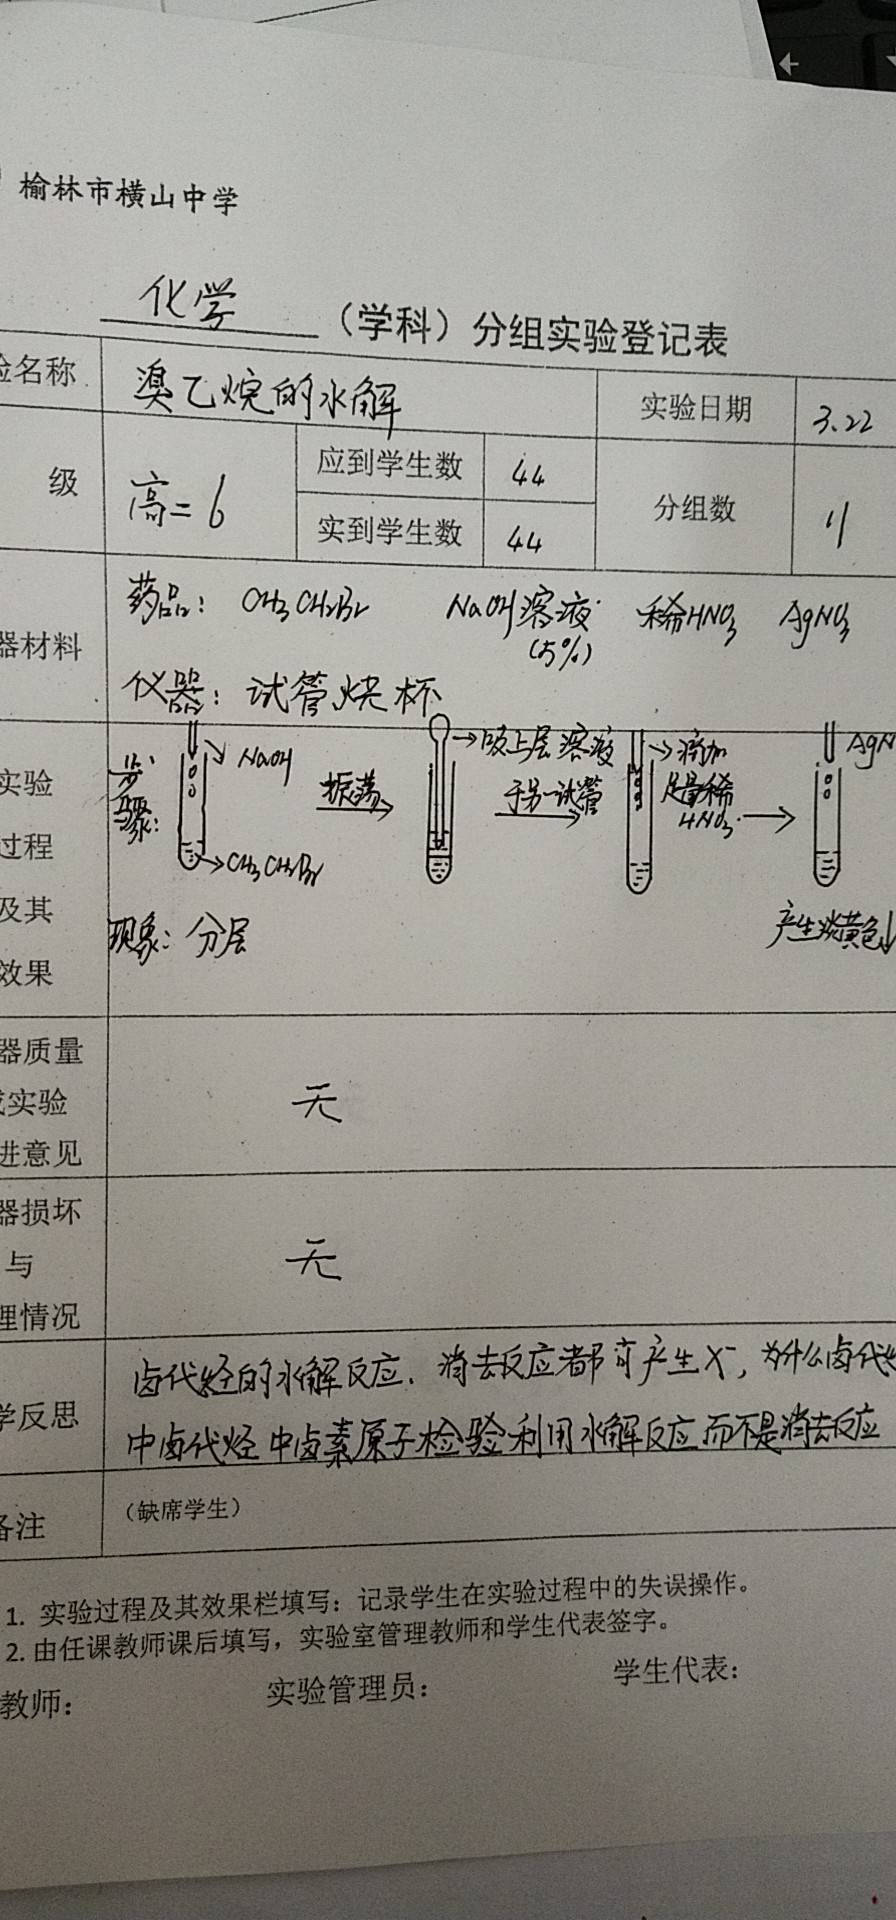 榆林市横山中学
化学 (学科)分组实验登记表
验名称 溴乙烷的水解 实验日期 3.22
级 高二6 应到学生数 44 分组数 11
实到学生数 44
器材料 药品: CH3CH2Br NaOH溶液 稀HNO3 AgNO3
(5%)
仪器: 试管 烧杯
实验 步骤: NaOH 振荡 →吸上层溶液 →滴加 AgN
过程 于另一试管 足量稀
→CH3CH2Br HNO3
及其 现象: 分层 产生淡黄色↓
效果
器质量
或实验 无
进意见
器损坏
与 无
理情况
卤代烃的水解反应、消去反应都可产生X⁻,为什么卤代烃
学反思 中卤代烃中卤素原子检验利用水解反应而不是消去反应
备注 (缺席学生)
1. 实验过程及其效果栏填写:记录学生在实验过程中的失误操作。
2. 由任课教师课后填写,实验室管理教师和学生代表签字。
教师: 实验管理员: 学生代表: